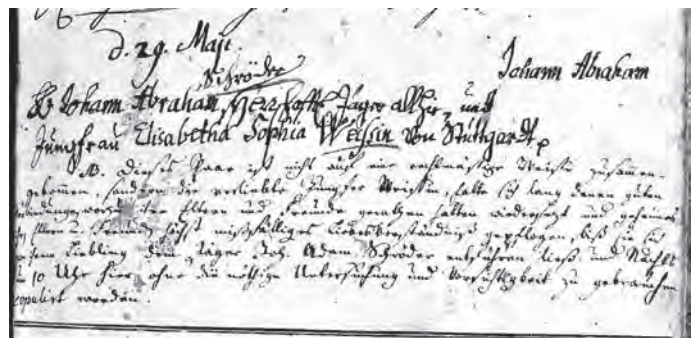 d. 29. Maji.
Johann Abraham
Schröder
Johann Abraham, Herrschafftl. Jäger allhier, und
Jungfrau Elisabetha Sophia Weissin von Stuttgardt
NB. Dieses Paar ist nicht auf eine rechtmäsige Weise zusammen-
gekommen, sondern die verliebte Jungfer Weissin, hatte sich lang denen guten
ihrer Eltern und Freunde gerathen hatten wiedersezt und geheimes
Eltern u. Freunde höchst mißfälliges Liebesverständniß gepflogen, biß sie sich
von ihrem Liebling dem Jäger Joh. Adam Schröder entführen ließ und Nachts
um 10 Uhr hier, ohne die nöthige Untersuchung und Vorsichtigkeit zu gebrauchen
copulirt worden.